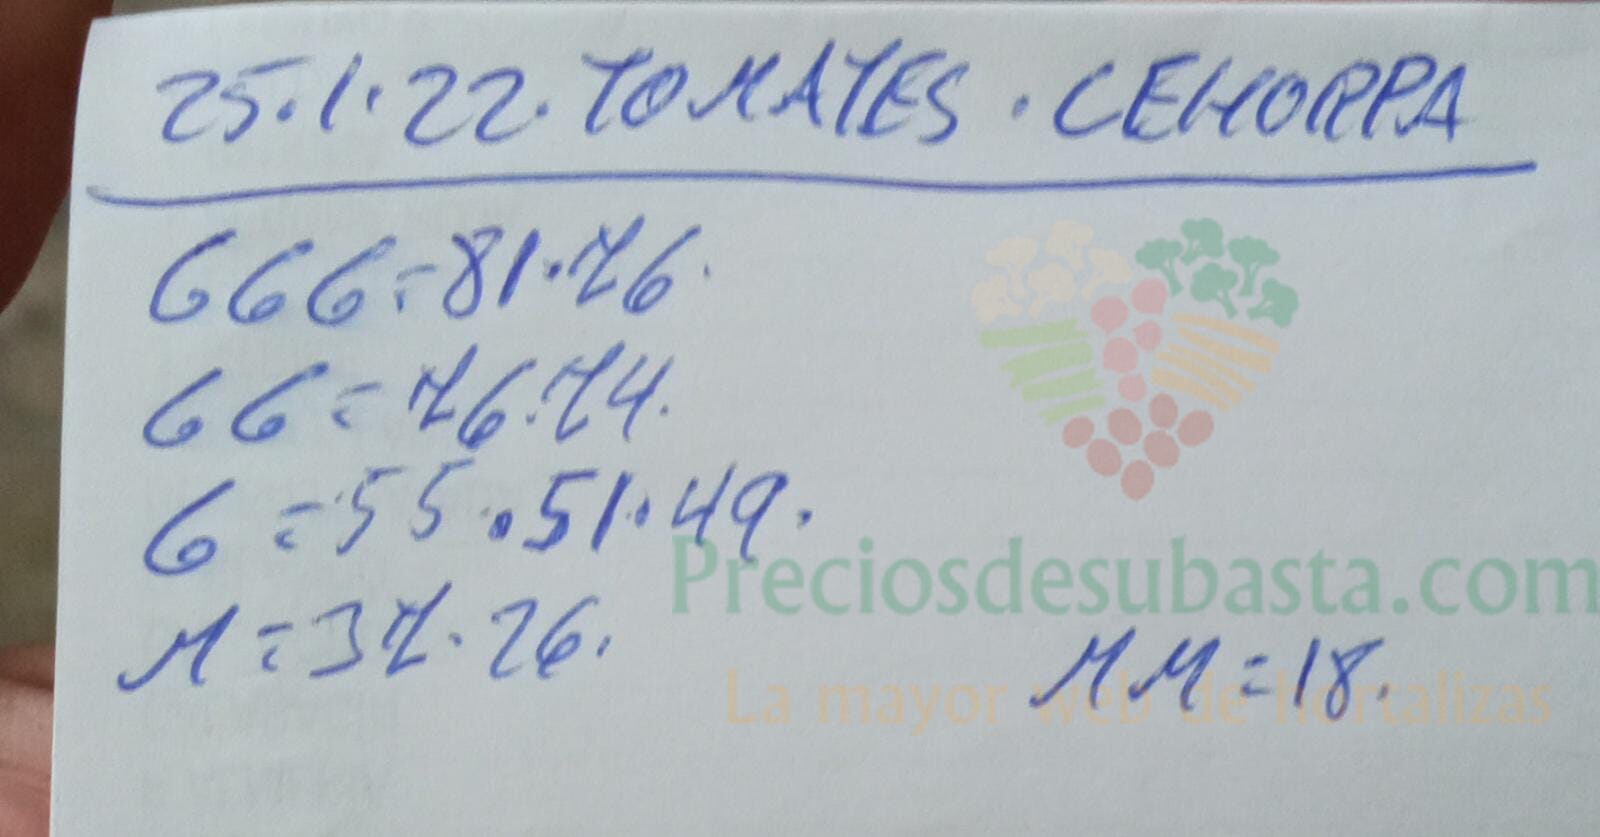 25.1.22. TOMATES. CEHORPA
GGG=81.76.
GG=76.74.
G=55.51.49.
M=37.26.
MM=18.
Preciosdesubasta.com
La mayor web de hortalizas